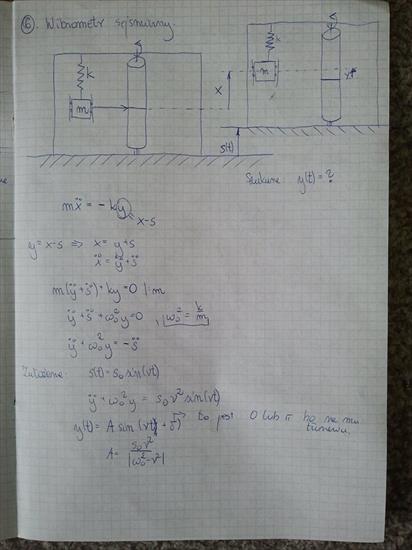 6. Wibrometr sejsmiczny.
k
m
x
k
m
y
s(t)
Szukane: y(t) = ?
mẍ = -ky
x-s
y = x-s ⟹ x = y+s
ẍ = ÿ + s̈
m(ÿ + s̈) + ky = 0 | : m
ÿ + s̈ + ω₀² y = 0 , ω₀² = k/m
ÿ + ω₀² y = - s̈
Założenie: s(t) = s₀ sin(νt)
ÿ + ω₀² y = s₀ ν² sin(νt)
y(t) = A sin(νt + δ) → to jest 0 lub π bo nie ma tłumienia.
A = s₀ν² / |ω₀² - ν²|